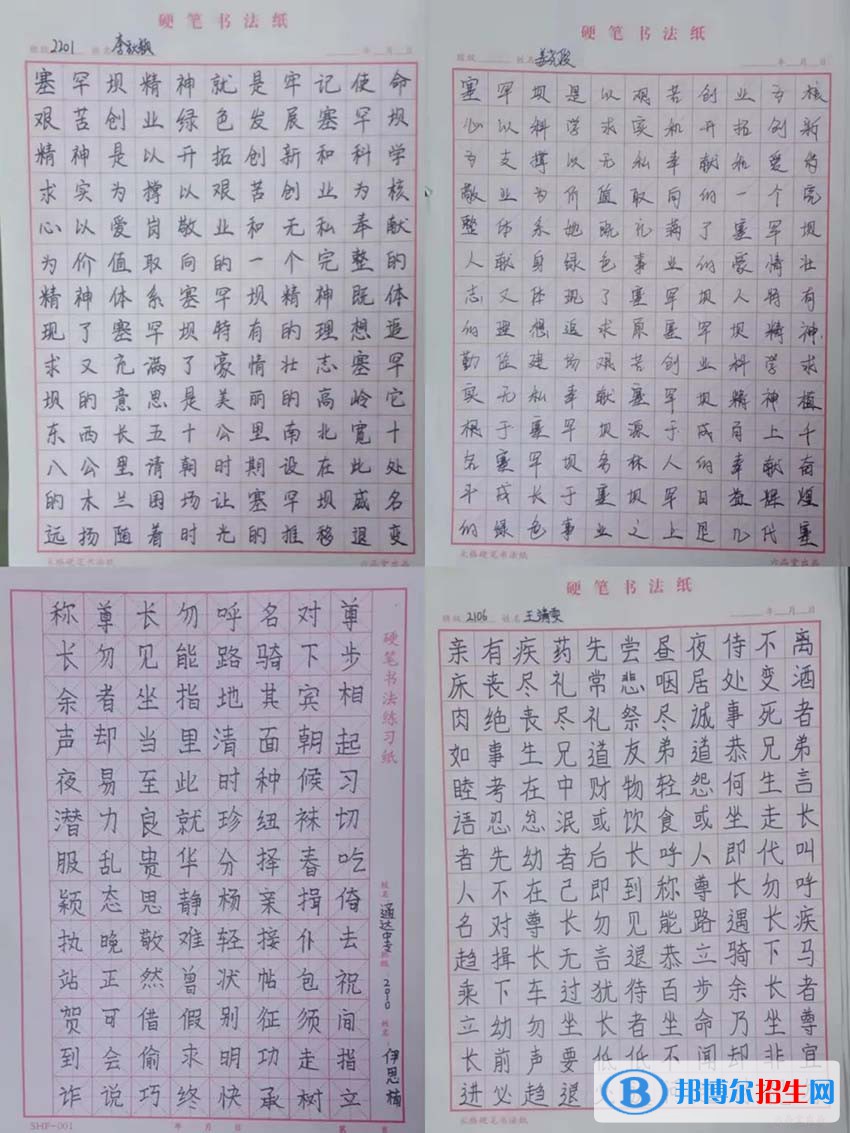 硬笔书法纸
班级 2201 姓名 李 年 月 日
塞罕坝精神就是牢记使命
艰苦创业绿色发展塞罕坝
精神是以开拓创新和科学
求实为撑以艰苦创业为核
心以爱岗敬业和无私奉献
为价值取向的一个完整的
精神体系塞罕坝精神既体
现了塞罕坝特有的理想追
求又充满了豪情壮志塞罕
坝的意思是美丽的高岭它
东西长五十公里南北宽十
八公里清朝时期设在此处
的木兰围场让塞罕坝威名
远扬随着时光的推移退变
米格硬笔书法纸
六品堂出品
硬笔书法纸
班级 姓名 年 月 日
塞罕坝是以艰苦创业为核
心以科学求实和开拓创新
为支撑以无私奉献和爱岗
敬业为价值取向的一个完
整体系她既充满了塞罕坝
人献身绿色事业的豪情壮
志又体现了塞罕坝人特有
的理想追求原塞罕坝精神
勤俭建场艰苦创业科学求
实无私奉献塞罕坝精神植
根于塞罕坝源于成有上千
名塞罕坝务林人的奉献奋
斗成长于塞坝罕日益辉煌
的绿色事业之上是几代塞
米格硬笔书法纸
六品堂出品
称尊长勿呼名对尊
长勿见能路骑下步
余者坐指地其宾相
声却当里清面朝起
夜易至此时种候习
潜力良就珍纽袜切
服乱贵华分择春吃
颖态思静杨亲揖倚
执晚敬难轻接仆去
站正然曾状帖包祝
贺可借假别征须间
到会偷求明功走指
诈说巧终快承树立
硬笔书法练习纸
姓名 通达中专 班级 2010 姓名 伊思楠
SHF-001
年 月 日 第 页
硬笔书法纸
班级 2106 姓名 王 年 月 日
亲有疾药先尝昼夜侍不离
床丧尽礼常悲咽居处变酒
肉绝丧尽礼祭尽诚事死者
如事生兄道友弟道恭兄弟
睦考在中财物轻怨何生言
语忍忿泯或饮食或坐走长
者先幼者后长呼人即代叫
人不在己即到称尊长勿呼
名对尊长勿见能路遇长疾
趋揖长无言退恭立骑下马
乘下车过犹待百步余长者
立幼勿坐长者坐命乃坐尊
长前声要低低不闻却非宜
进必趋退
米格硬笔书法纸
邦博尔招生网